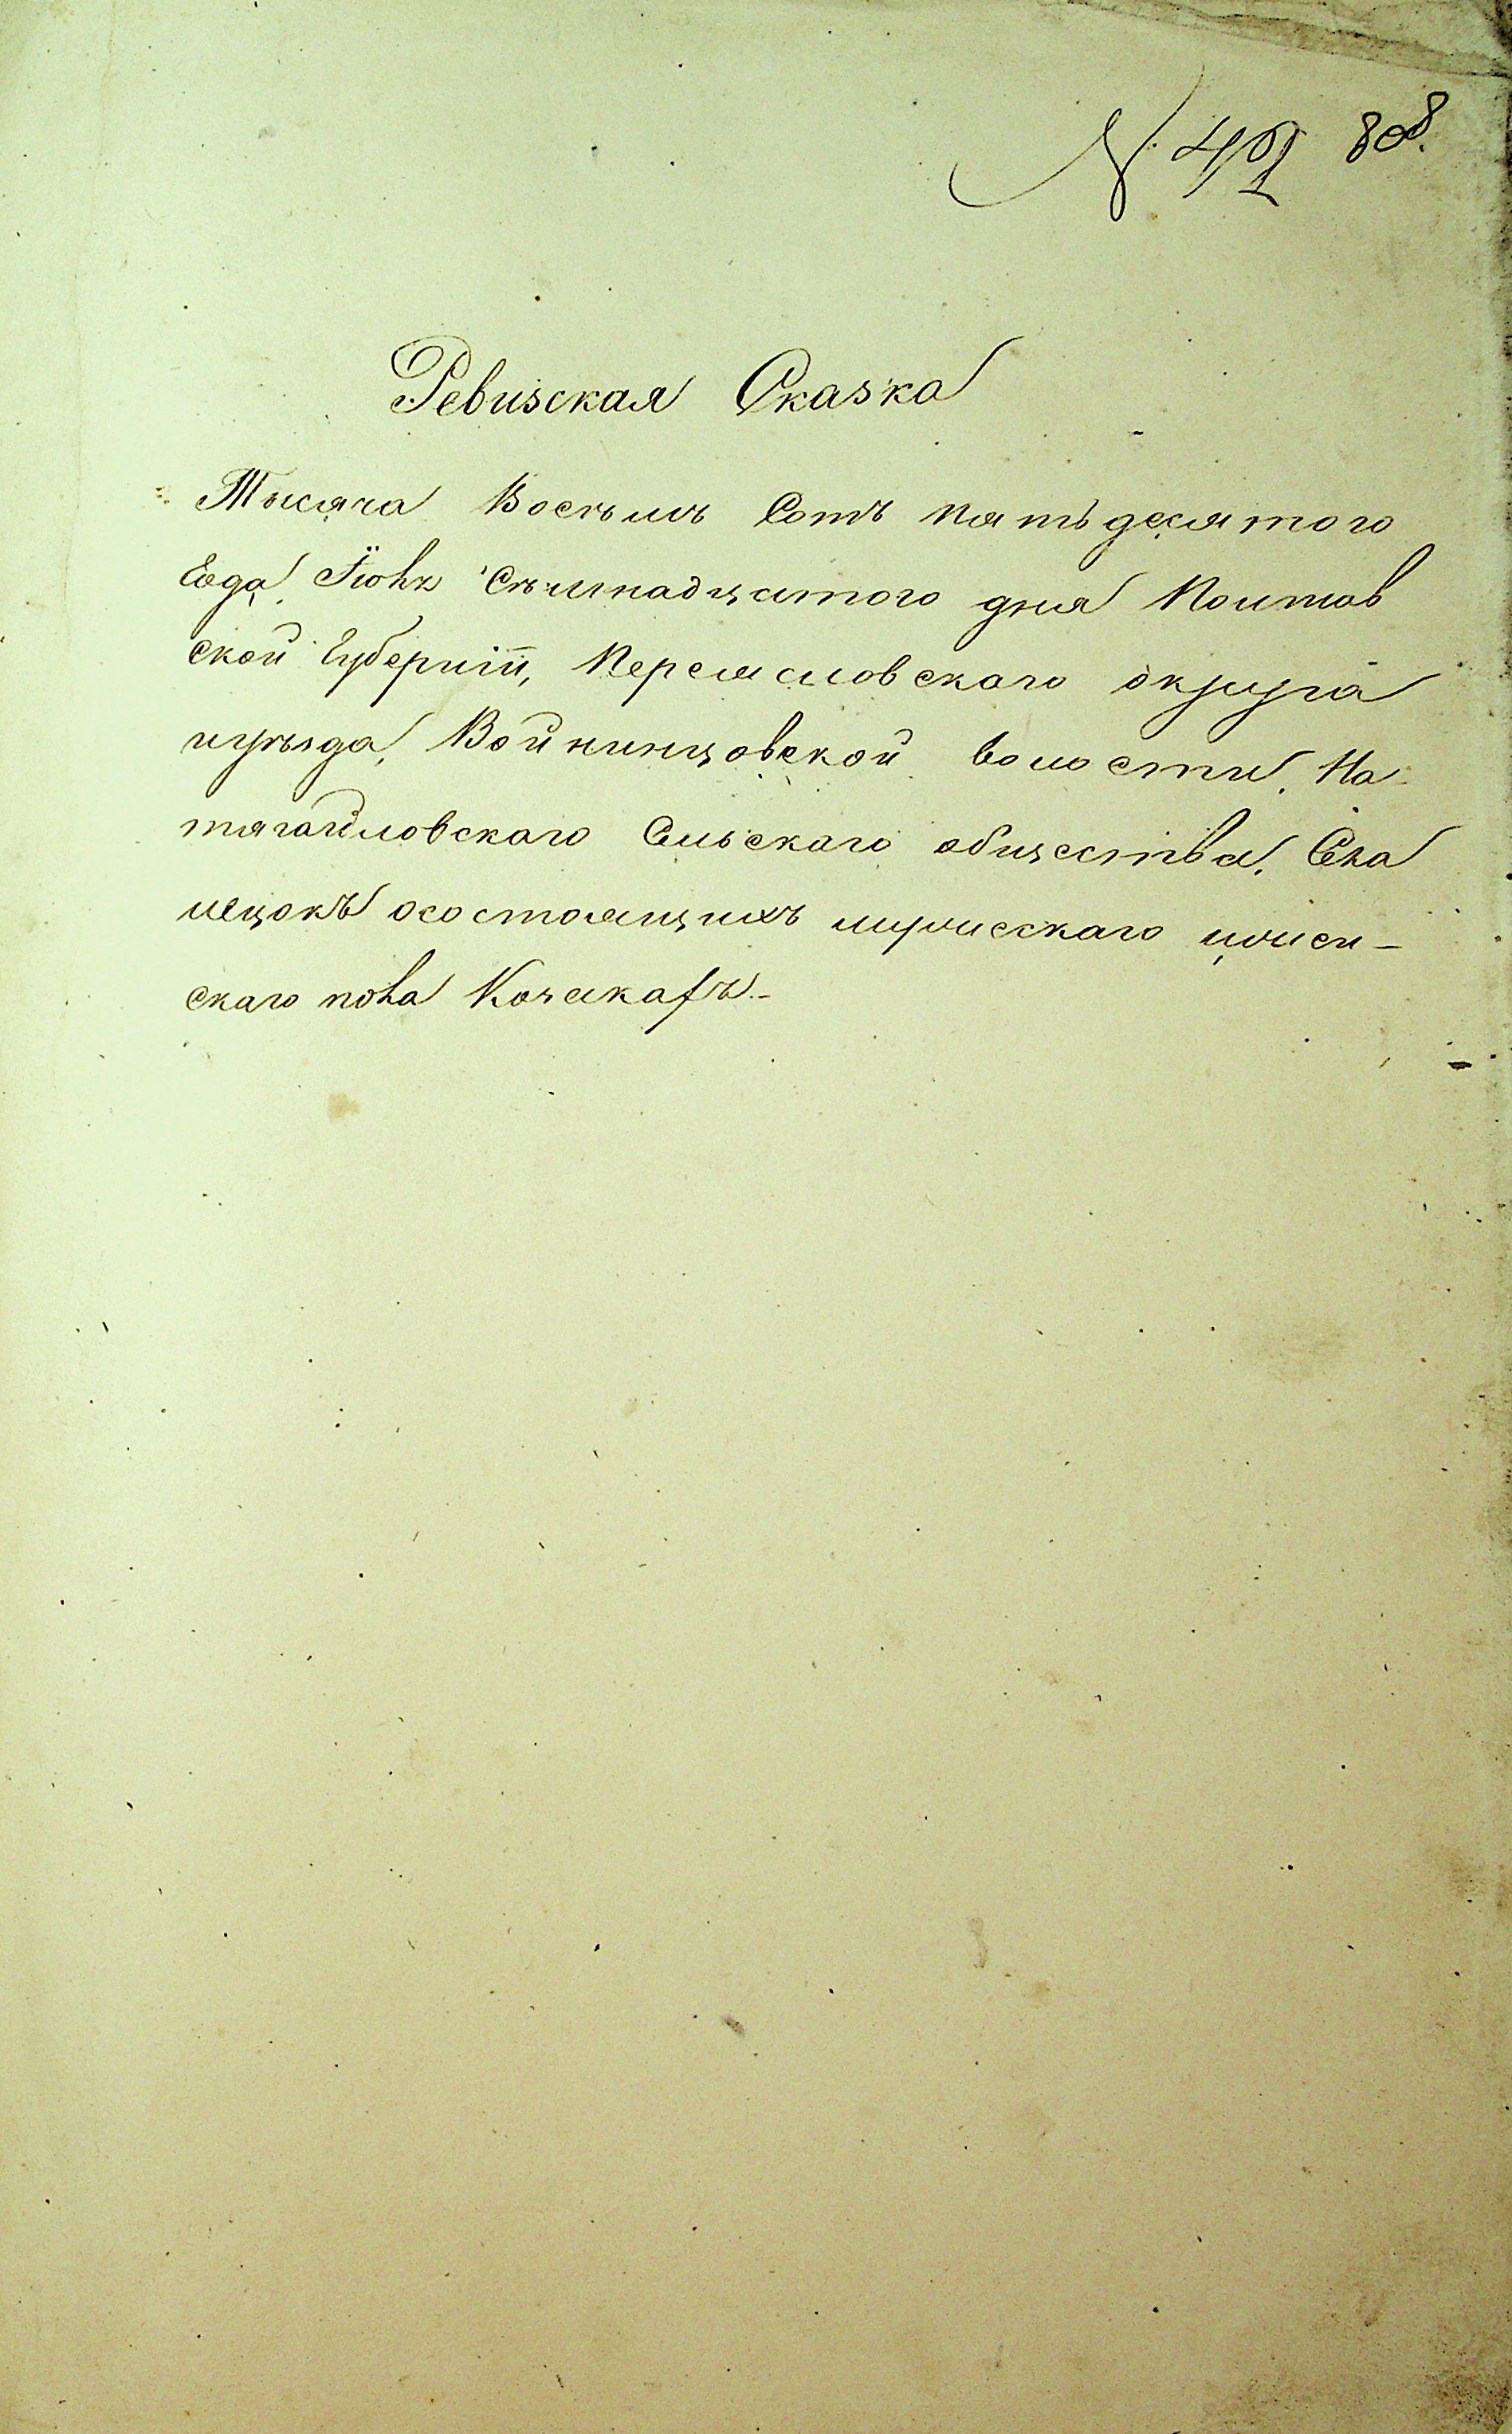 № 42 808.
Ревизская Сказка
Тысяча Восѣмъ Сотъ пятьдесятого
Года, Іюня Сѣмнадцатого дня Полтав
ской Губерніи, Переясловскаго округа
иуѣзда, Войнинцовской волости, На-
тягайловскаго Сельскаго общества,
осостоящихъ мужескаго
скаго пола Козакахъ.-